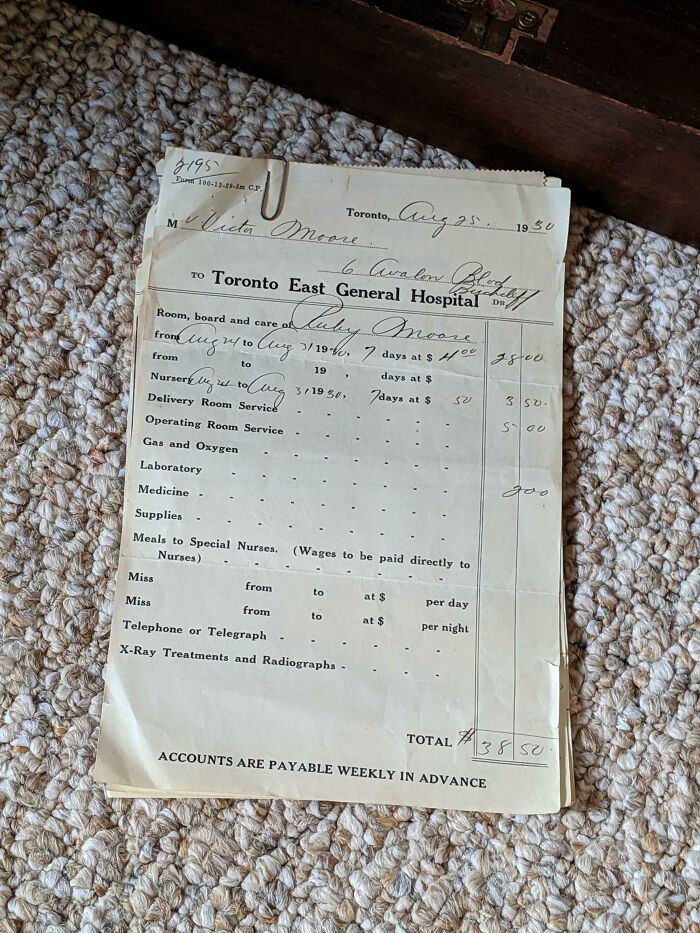 2195
Form 100-12-29-5m C.P.
Toronto, Aug 25. 1930
M Victor Moore.
6 Avalon Blvd
TO Toronto East General Hospital DR.
Room, board and care of Ruby Moore
from Aug 24 to Aug 31 1930, 7 days at $ 4 00 28 00
from to 19 , days at $
Nursery Aug 24 to Aug 31 1930, 7 days at $ 50 3 50
Delivery Room Service - - - - - - 5 00
Operating Room Service - - - - - -
Gas and Oxygen - - - - - -
Laboratory - - - - - -
Medicine - - - - - - - 200
Supplies - - - - - - -
Meals to Special Nurses. (Wages to be paid directly to
Nurses) - - - - - - -
Miss from to at $ per day
Miss from to at $ per night
Telephone or Telegraph - - - - -
X-Ray Treatments and Radiographs - - - -
TOTAL $ 38 50
ACCOUNTS ARE PAYABLE WEEKLY IN ADVANCE